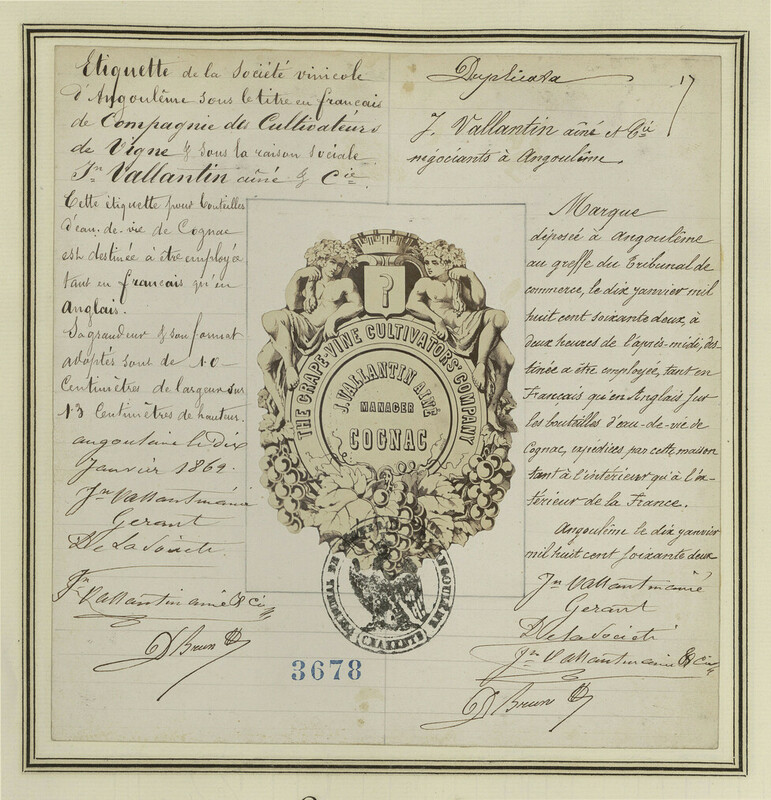 Etiquette de la Société vinicole
d'Angoulême sous le titre en français
de Compagnie des Cultivateurs
de Vigne & sous la raison sociale
Jn Vallantin aîné & Cie.
Cette étiquette pour bouteilles
d'eau-de-vie de Cognac
est destinée à être employée
tant en français qu'en
Anglais.
Sa grandeur & son format
adoptés sont de 10
Centimètres de largeur sur
13 Centimètres de hauteur.
angoulême le Dix
Janvier 1862.
Jn Vallantin aîné
Gérant
De La Société
Jn Vallantin aîné & Cie
D Brun
Duplicata
17
J. Vallantin aîné et Cie
négociants à Angoulême.
Marque
déposée à Angoulême
au greffe du Tribunal de
commerce, le dix janvier mil
huit cent soixante deux, à
deux heures de l'après-midi, des-
tinée a être employée, tant en
Français qu'en Anglais sur
les bouteilles d'eau-de-vie de
Cognac, expédiées par cette maison
tant à l'intérieur qu'à l'ex-
térieur de la France.
Angoulême le dix janvier
mil huit cent soixante deux
Jn Vallantin aîné
Gérant
De la Société
Jn Vallantin aîné & Cie
D Brun
THE GRAPE-VINE CULTIVATORS' COMPANY
J. VALLANTIN AINÉ
MANAGER
COGNAC
TRIBUNAL DE COMMERCE D'ANGOULÊME
(CHARENTE)
3678